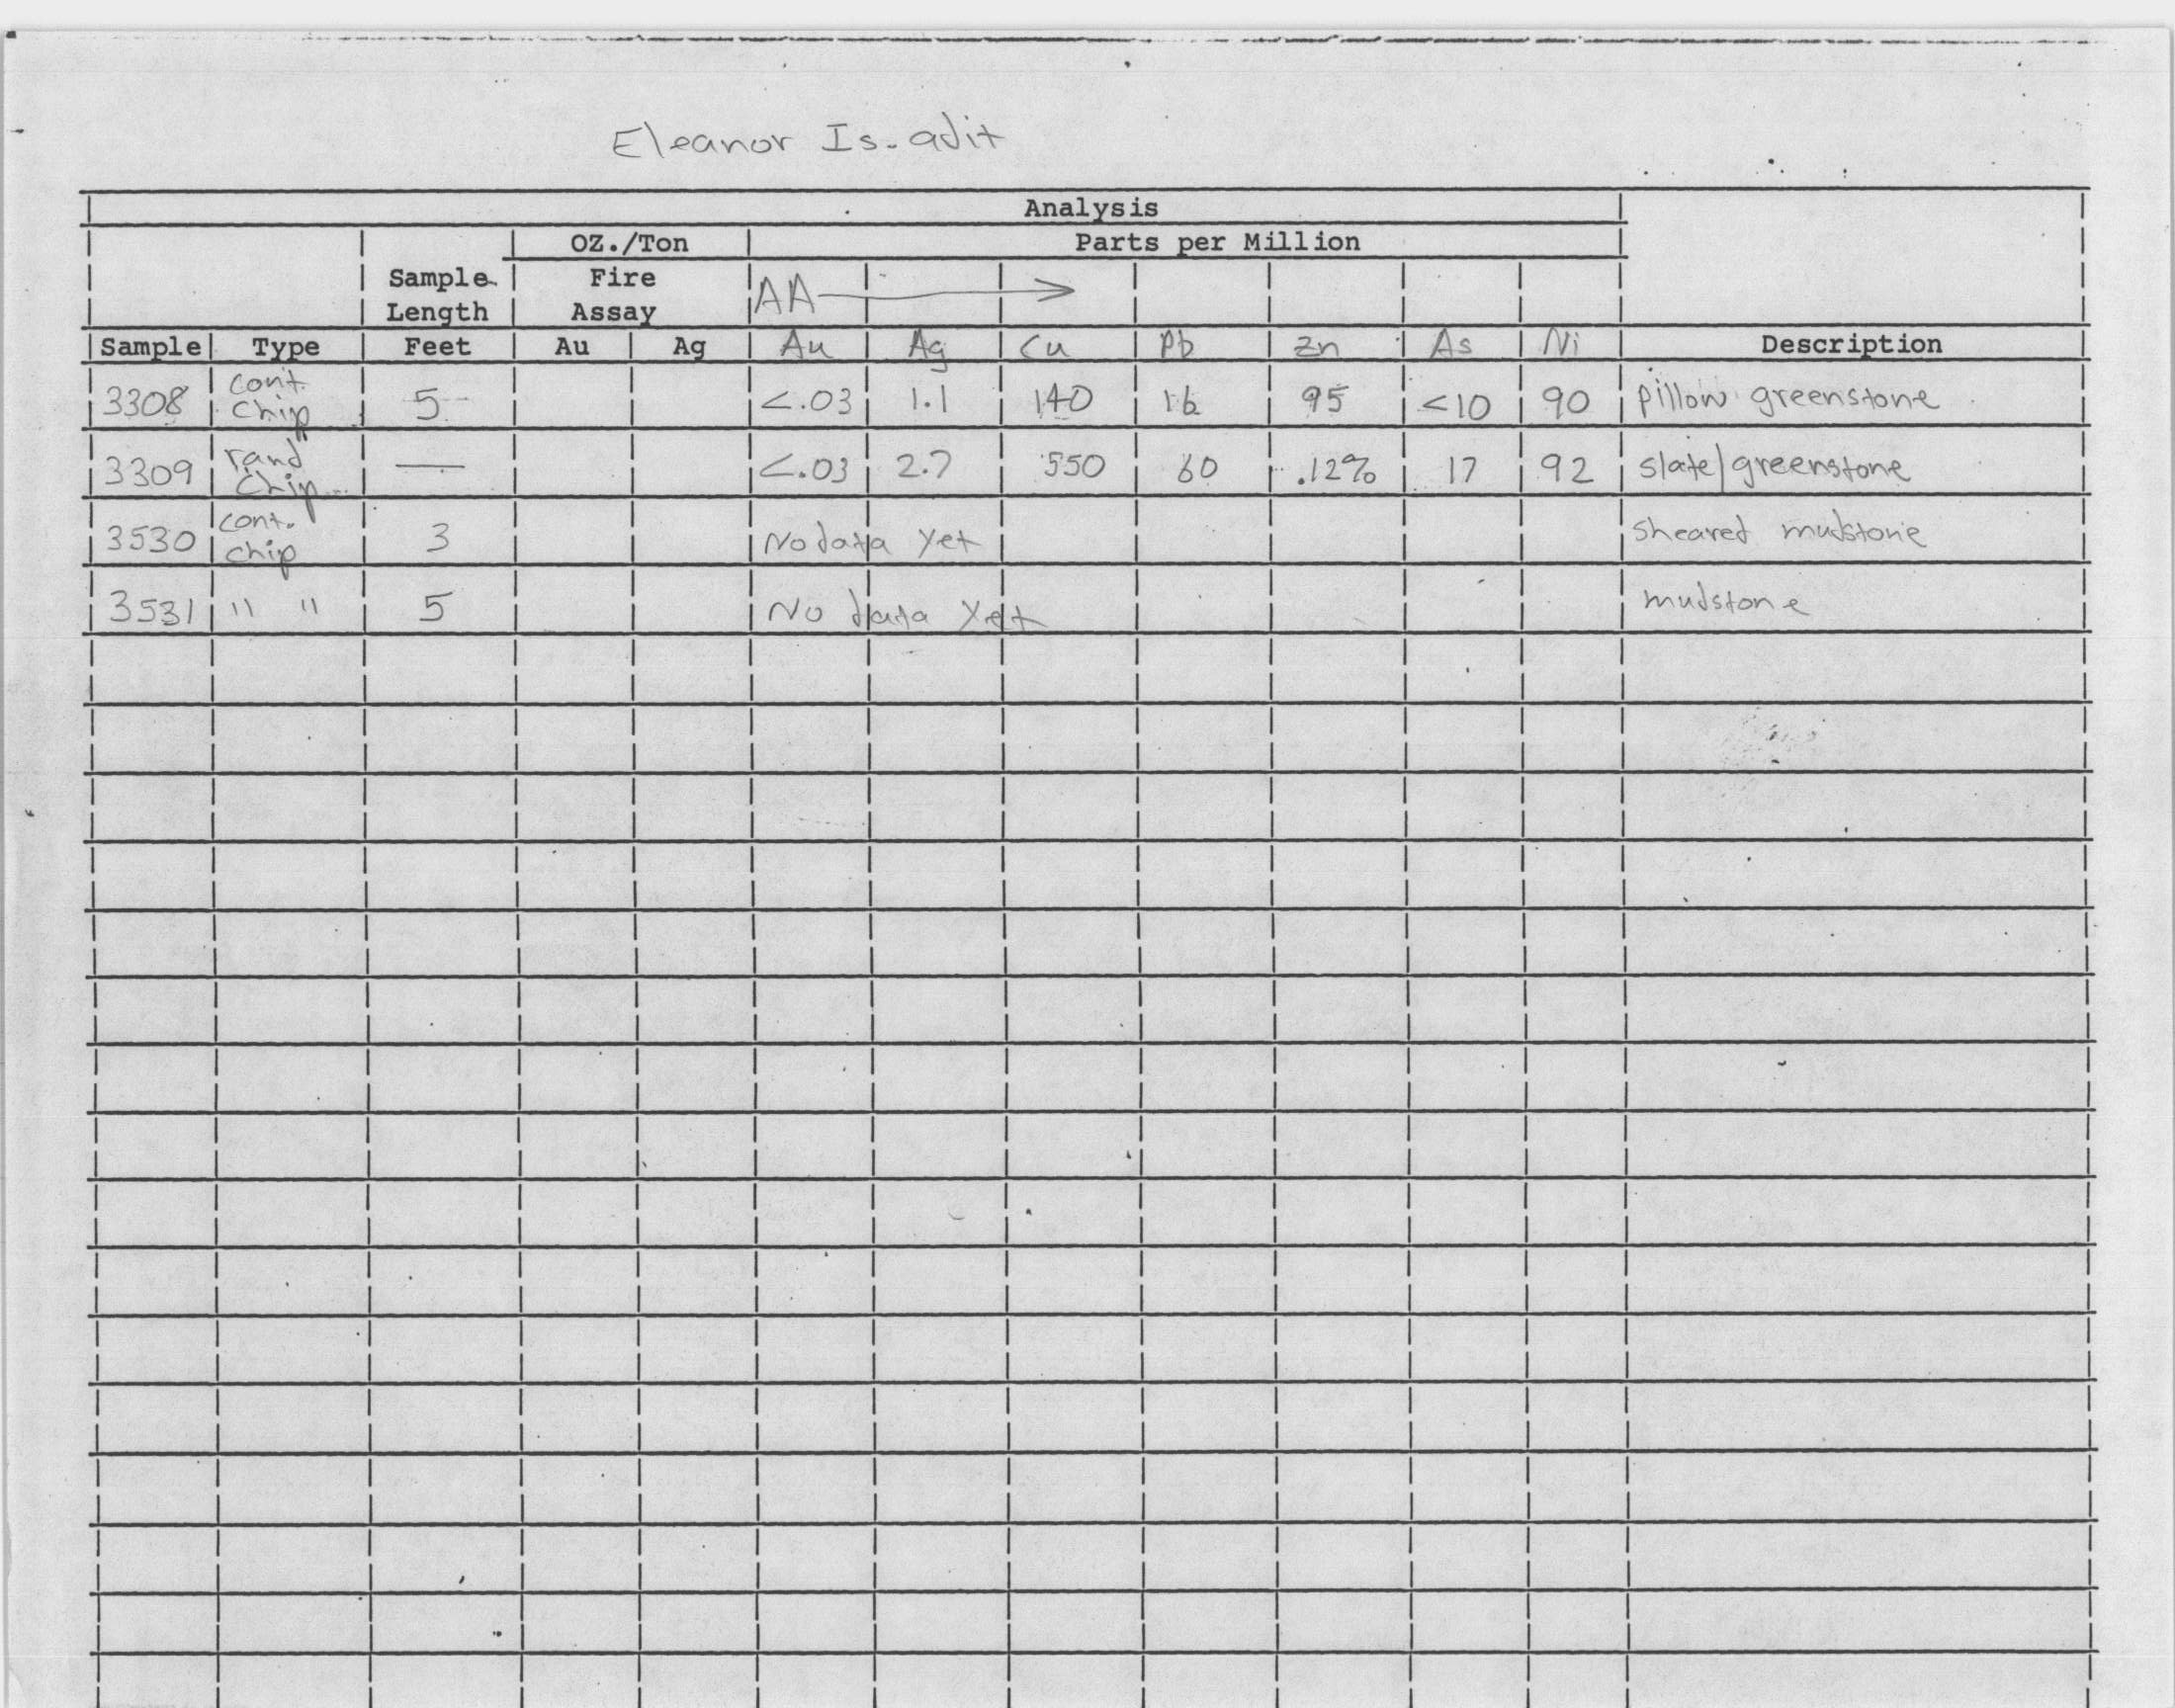 Eleanor Is. adit
Analysis
OZ./Ton Parts per Million
Sample Fire AA
Length Assay
Sample Type Feet Au Ag Au Ag Cu Pb Zn As Ni Description
3308 cont. chip 5 <.03 1.1 140 16 95 <10 90 pillow greenstone
3309 rand chip — <.03 2.7 550 60 .12% 17 92 slate/greenstone
3530 cont. chip 3 No data yet sheared mudstone
3531 " " 5 No data yet mudstone